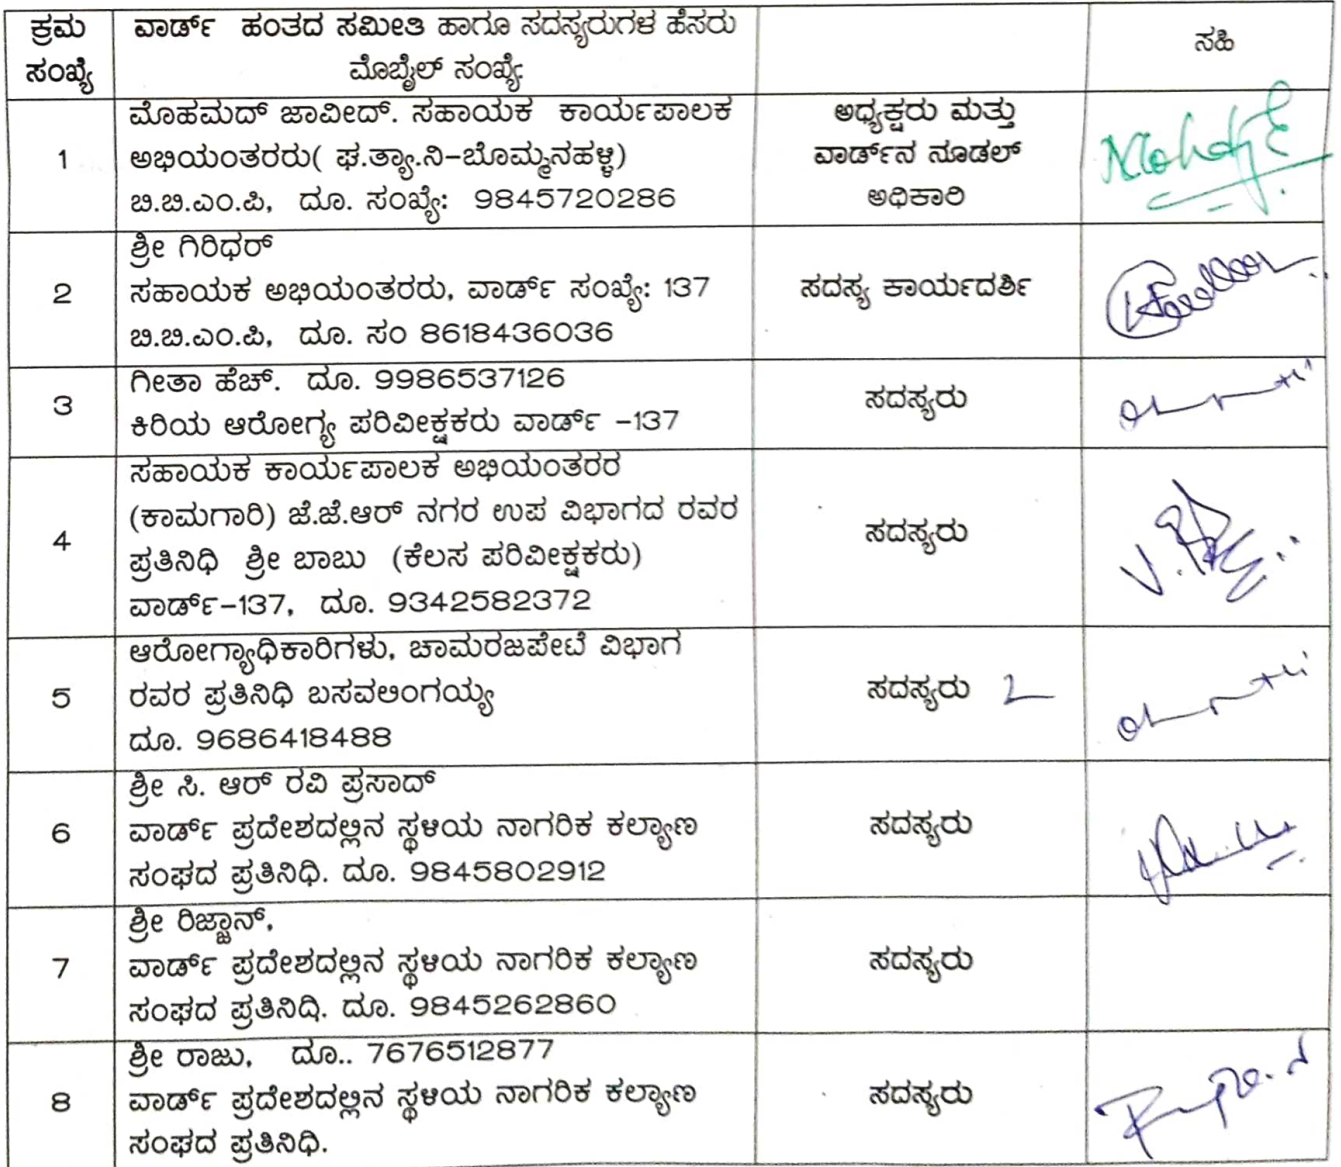 ಕ್ರಮ ಸಂಖ್ಯೆ
ವಾರ್ಡ್ ಹಂತದ ಸಮೀತಿ ಹಾಗೂ ಸದಸ್ಯರುಗಳ ಹೆಸರು
ಮೊಬೈಲ್ ಸಂಖ್ಯೆ
ಸಹಿ
1
ಮೊಹಮದ್ ಜಾವೀದ್. ಸಹಾಯಕ ಕಾರ್ಯಪಾಲಕ
ಅಭಿಯಂತರರು( ಘ.ತ್ಯಾ.ನಿ-ಬೊಮ್ಮನಹಳ್ಳಿ)
ಬಿ.ಬಿ.ಎಂ.ಪಿ, ದೂ. ಸಂಖ್ಯೆ: 9845720286
ಅಧ್ಯಕ್ಷರು ಮತ್ತು
ವಾರ್ಡ್‌ನ ನೂಡಲ್
ಅಧಿಕಾರಿ
2
ಶ್ರೀ ಗಿರಿಧರ್
ಸಹಾಯಕ ಅಭಿಯಂತರರು, ವಾರ್ಡ್ ಸಂಖ್ಯೆ: 137
ಬಿ.ಬಿ.ಎಂ.ಪಿ, ದೂ. ಸಂ 8618436036
ಸದಸ್ಯ ಕಾರ್ಯದರ್ಶಿ
3
ಗೀತಾ ಹೆಚ್. ದೂ. 9986537126
ಕಿರಿಯ ಆರೋಗ್ಯ ಪರಿವೀಕ್ಷಕರು ವಾರ್ಡ್ -137
ಸದಸ್ಯರು
4
ಸಹಾಯಕ ಕಾರ್ಯಪಾಲಕ ಅಭಿಯಂತರರ
(ಕಾಮಗಾರಿ) ಜೆ.ಜೆ.ಆರ್ ನಗರ ಉಪ ವಿಭಾಗದ ರವರ
ಪ್ರತಿನಿಧಿ ಶ್ರೀ ಬಾಬು (ಕೆಲಸ ಪರಿವೀಕ್ಷಕರು)
ವಾರ್ಡ್-137, ದೂ. 9342582372
ಸದಸ್ಯರು
5
ಆರೋಗ್ಯಾಧಿಕಾರಿಗಳು, ಚಾಮರಜಪೇಟೆ ವಿಭಾಗ
ರವರ ಪ್ರತಿನಿಧಿ ಬಸವಲಿಂಗಯ್ಯ
ದೂ. 9686418488
ಸದಸ್ಯರು
6
ಶ್ರೀ ಸಿ. ಆರ್ ರವಿ ಪ್ರಸಾದ್
ವಾರ್ಡ್ ಪ್ರದೇಶದಲ್ಲಿನ ಸ್ಥಳಿಯ ನಾಗರಿಕ ಕಲ್ಯಾಣ
ಸಂಘದ ಪ್ರತಿನಿಧಿ. ದೂ. 9845802912
ಸದಸ್ಯರು
7
ಶ್ರೀ ರಿಜ್ಞಾನ್,
ವಾರ್ಡ್ ಪ್ರದೇಶದಲ್ಲಿನ ಸ್ಥಳಿಯ ನಾಗರಿಕ ಕಲ್ಯಾಣ
ಸಂಘದ ಪ್ರತಿನಿಧಿ. ದೂ. 9845262860
ಸದಸ್ಯರು
8
ಶ್ರೀ ರಾಜು, ದೂ.. 7676512877
ವಾರ್ಡ್ ಪ್ರದೇಶದಲ್ಲಿನ ಸ್ಥಳಿಯ ನಾಗರಿಕ ಕಲ್ಯಾಣ
ಸಂಘದ ಪ್ರತಿನಿಧಿ.
ಸದಸ್ಯರು